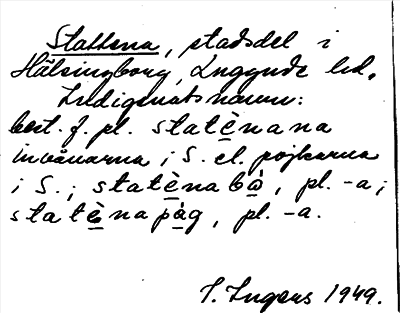 Stattena, stadsdel i
Hälsingborg, Luggude hd.
Indigenatsnamn:
best. f. pl. statènana
invånarna i S. el. pojkarna
i S.; statènabò, pl. -a;
statènapàg, pl. -a.
I. Ingers 1949.